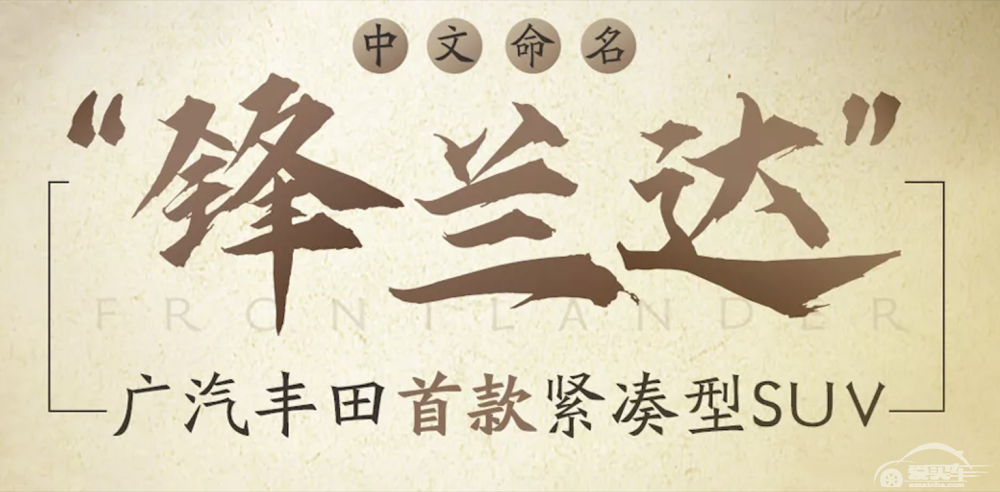 中文命名
“锋兰达”
FRONTLANDER
广汽丰田首款紧凑型SUV
爱买车